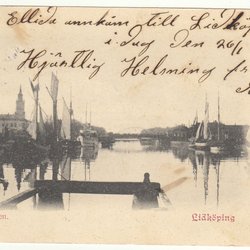 Ellida ankom till Lidkö
i dag den 26/1
Hjärtlig Helsning fr
en.
Lidköping